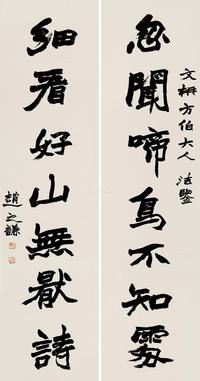 文柟方伯大人法鑒
忽聞啼鳥不知處
細看好山無厭詩
趙之謙